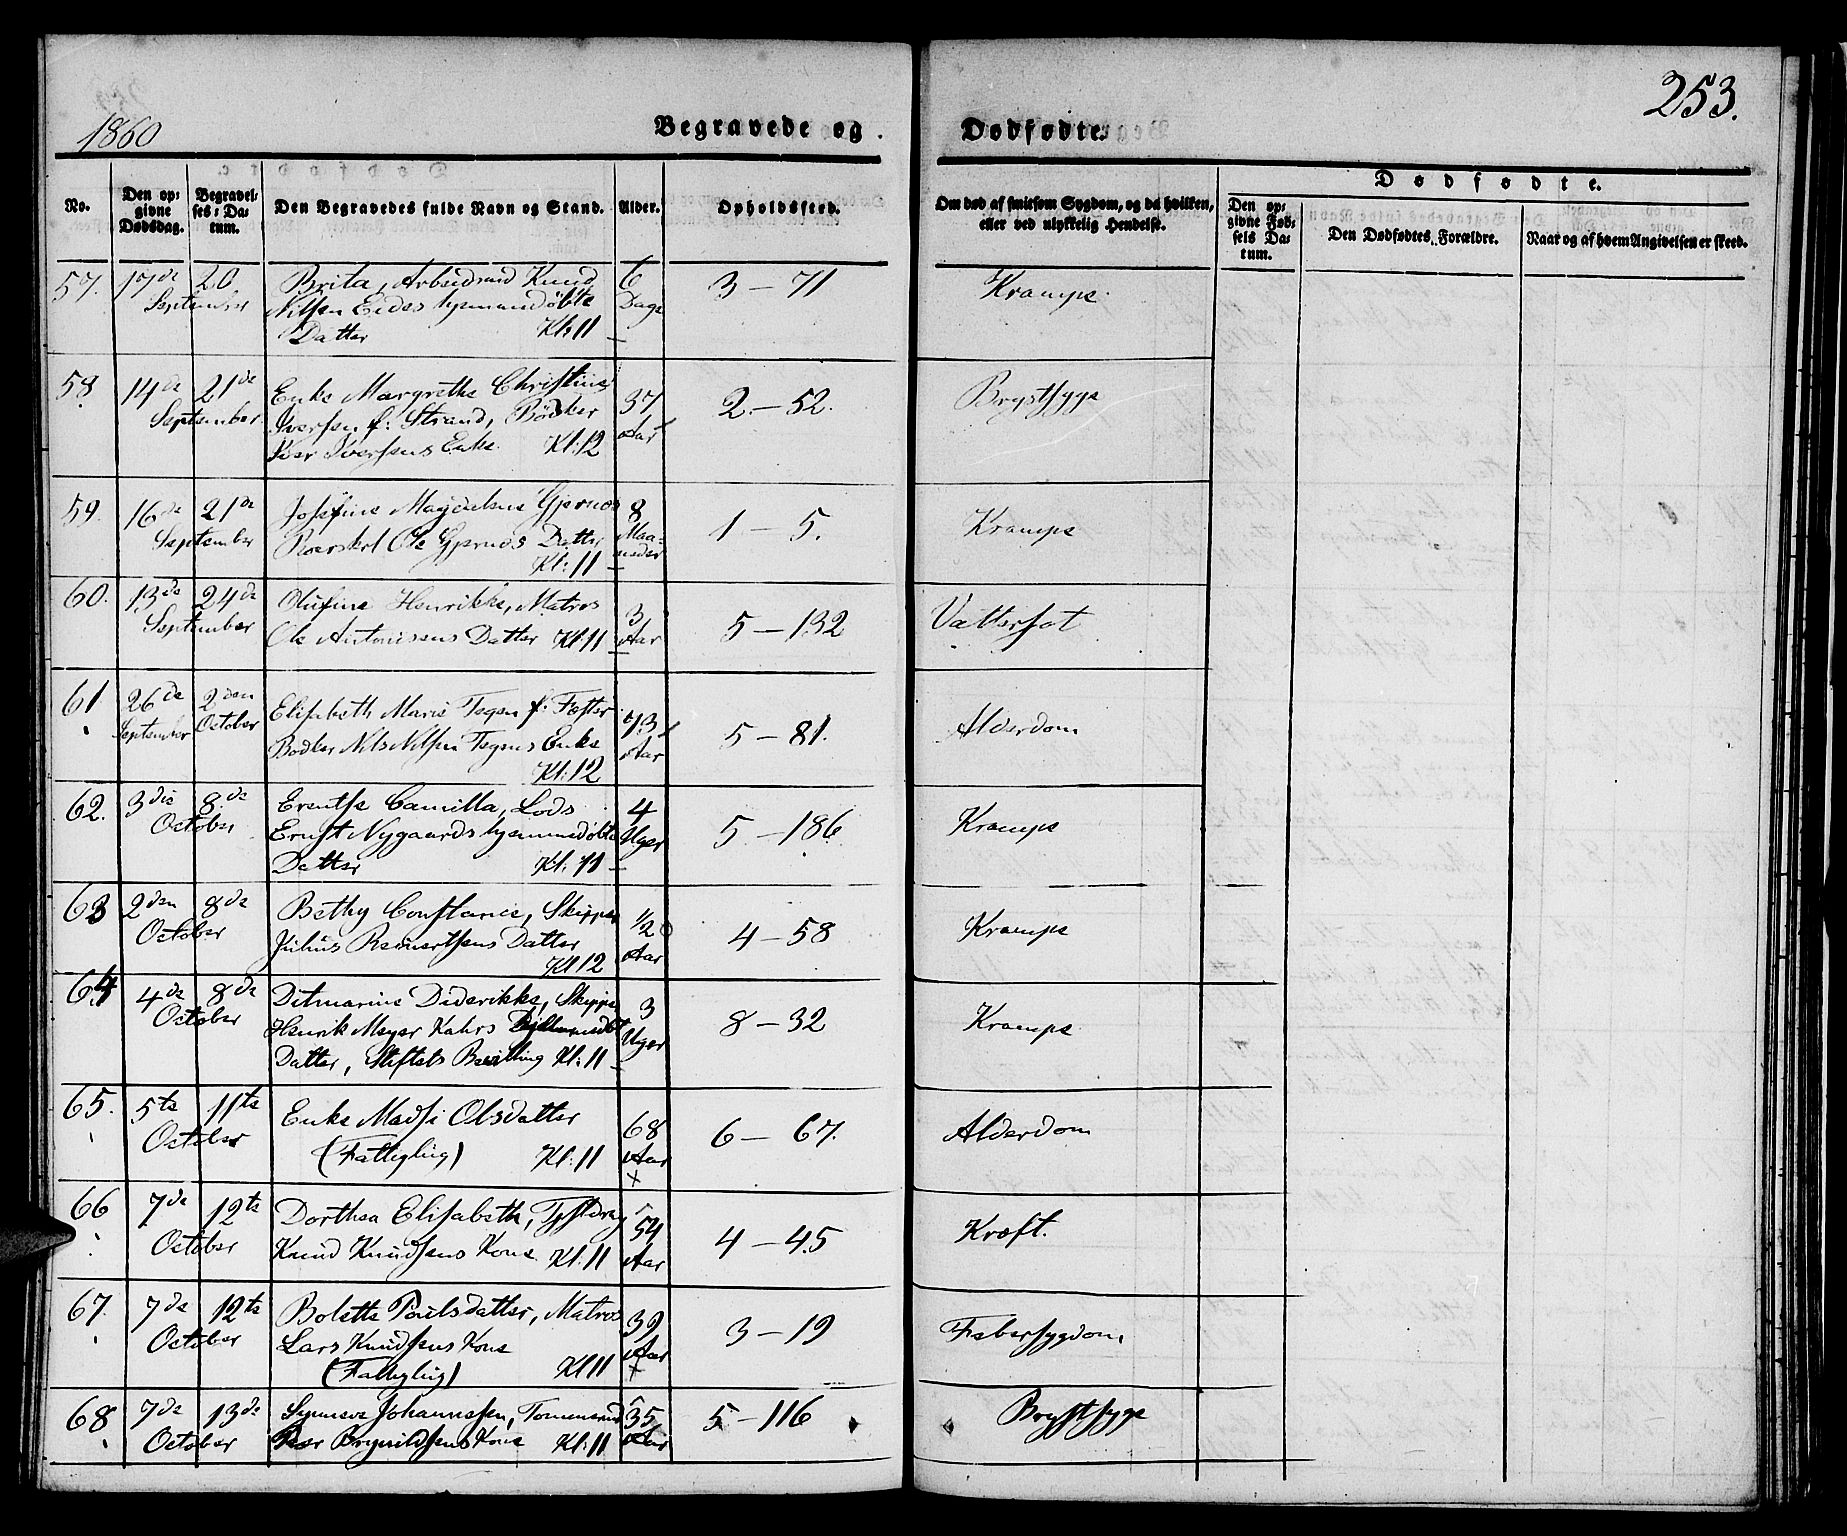 1860
Begravede og
Dødfødte.
253.
No.
Den opgivne Dødsdag.
Begravelses-Datum.
Den Begravedes fulde Navn og Stand.
Alder.
Opholdssted.
Om død af smitsom Sygdom, og da hvilken, eller ved ulykkelig Hendelse.
Dødfødte.
Den opgivne Fødsels Datum.
Den Dødfødtes Forældre.
Naar og af hvem Angivelsen er skeed.
57. 17de 20 Brita, Arbeidsmd Knud 6 3 – 71 Krampe
September Nilsen Eides hjemmedöbte Dage
Datter Kl: 11
58. 14de 21de Enke Margrethe Christine 37 2 – 52. Brystsyge
September Iversen f: Strand, Bödker Aar
Iver Iversens Enke. Kl: 12
59. 16de 21de Josefine Magdalene Gjernæs 8 1 – 5. Krampe
September Ole Gjernæs Datter Maaneder
Kl: 11
60. 13de 24de Olufine Henrikke, Matros 3 5 – 132 Vattersot
September Ole Antonisens Datter Kl: 11 Aar
61. 26de 2den Elisabeth Marie Tegen f: Fæster 73 5 – 81. Alderdom
September October Bödker Nils Nilsen Tegens Enke Aar
Kl: 12
62. 3die 8de Erentse Camilla, Lods 4 5 – 186. Krampe
October Ernst Nygaards hjemmedöbte Uger
Datter Kl: 11
63 2den 8de Bethy Constance, Skipper 1/2 4 – 58 Krampe
October Julius Reinertsens Datter Aar
Kl 12
64 4de 8de Ditmarine Diderikke, Skipper 3 8 – 32 Krampe
October Henrik Meyer Kahrs hjemmedöbt Uger
Datter, Stiftets Bevilling Kl: 11
65. 5te 11te Enke Madsi Olsdatter 68 6 – 67. Alderdom
October (Fattigling) Kl: 11 Aar
66 7de 12te Dorthea Elisabeth, 54 4 – 45 Kræft.
October Knud Knudsens Kone Kl: 11 Aar
67. 7de 12te Bolette Poulsdatter, Matros 39 3 – 19 Febersygdom
October Lars Knudsens Kone Aar
(Fattiglig) Kl 11
68 7de 13de Synneve Johannesen, Tömmermd 35 5 – 116 Brystsyge
October Peer Brynildsens Kone Kl: 11 Aar